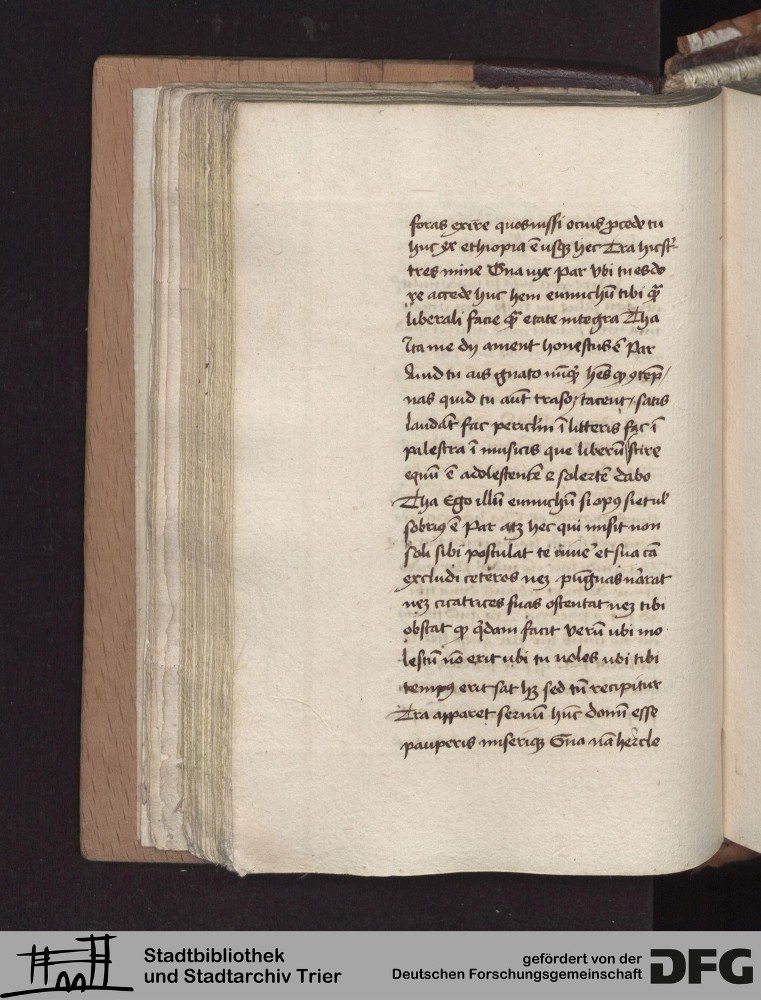 foras exire quos iussi ocius p̱cede tu
huc ex ethiopia ē usq̨ hec Tra hic st̄
tres mine Gna vix Par Vbi tu es do
re accede huc hem eunuchū tibi q̄
liberali facie q̄ etate integra Tha
Ita me dij ament honestus ē Par
Quid tu ais gnato nūq̄ hēs qͦ ꝯtēp̄/
nas quid tu aūt traso / tacent / satis
laudāt fac periclm̄ ī litteris fac ī
palestra ī musicis que liberū scire
equū ē adolescentē et solertē dabo
Tha Ego illū eunuchū si opꝰ siet ul̄
sobriꝰ ē Par atq̨ hec qui misit non
soli sibi postulat te viuē et sua cā
excludi ceteros neqꝫ pūgnas nārat
neqꝫ cicatrices suas ostentat neqꝫ tibi
obstat qͦ q̄dam facit Verū ubi mo
lestū nō erit ubi tu uoles ubi tibi
tempꝰ erit sat hꝫ sed tū recipitur
Tra apparet seruū hūc domī esse
pauperis miseriqꝫ Gna nā hercle
Stadtbibliothek
und Stadtarchiv Trier
gefördert von der
Deutschen Forschungsgemeinschaft
DFG